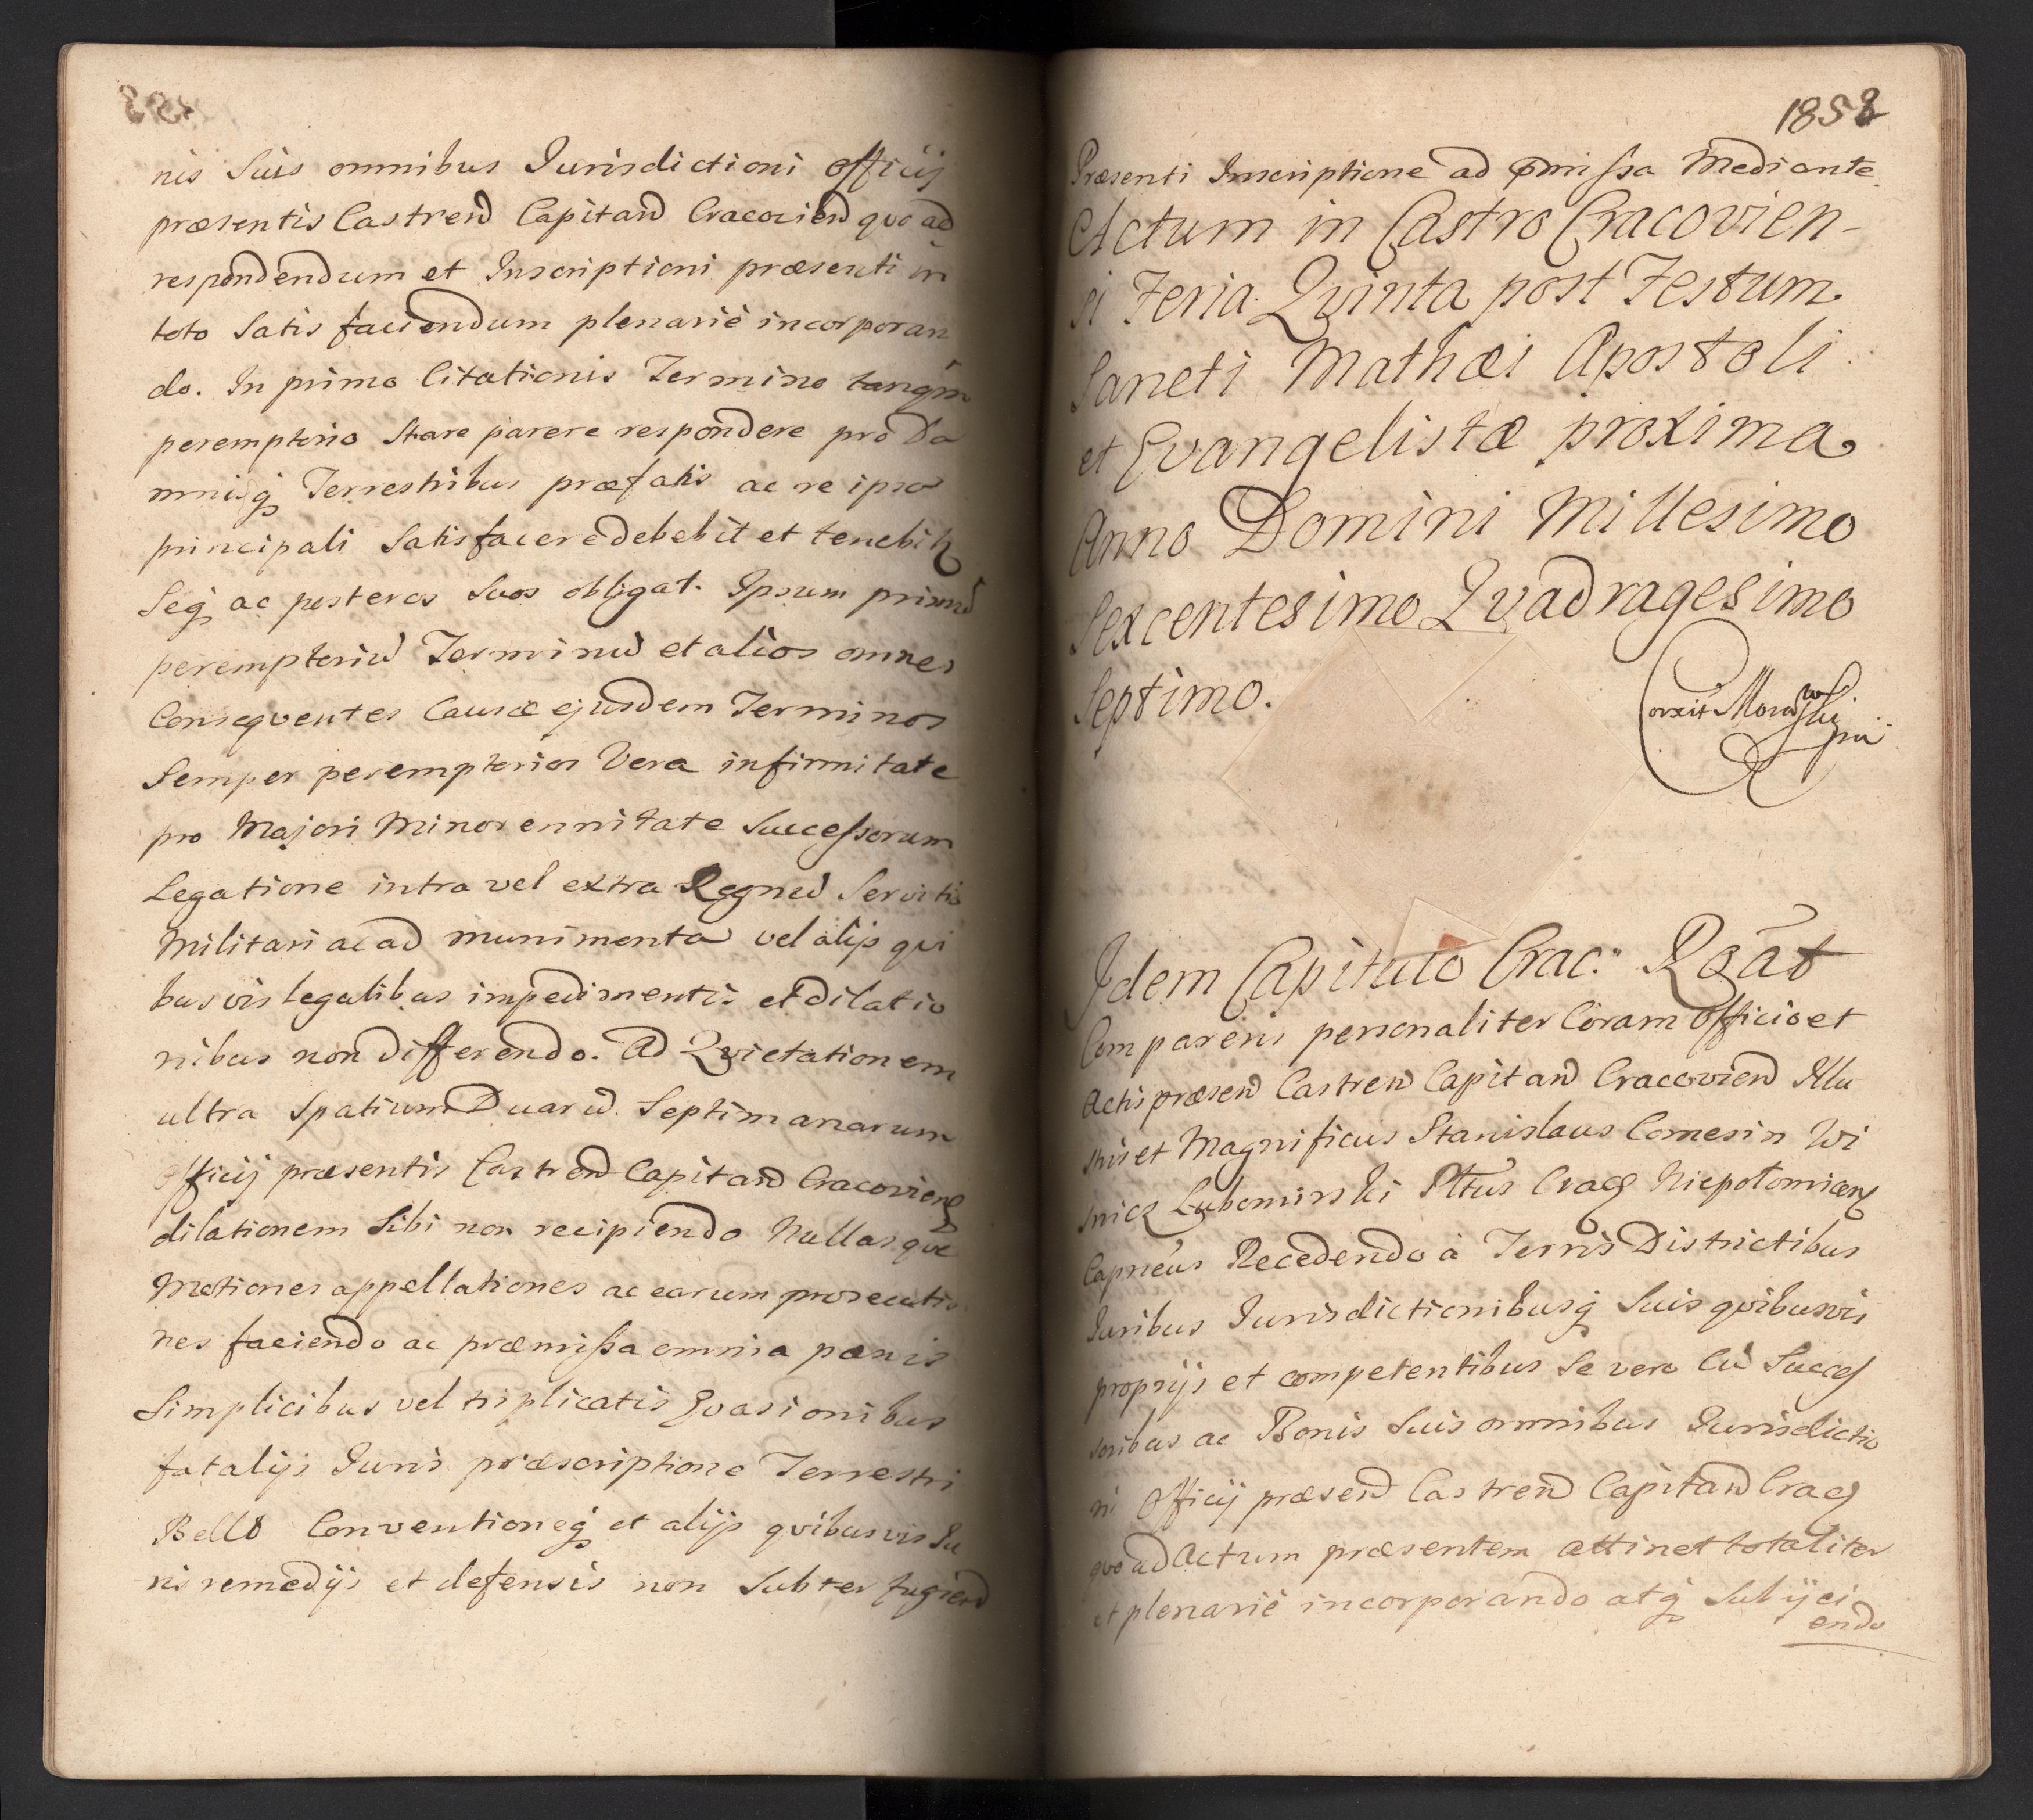 nis Suis omnibus Jurisdictioni Officij
præsentis Castren Capitan Cracovien quo ad
respondendum et Inscriptioni præsenti in
toto Satis faciendum plenariè incorporan
do. In primo Citationis Termino tanqm
peremptorio Stare parere respondere pro Da
mnisq Terrestribus præfatis ac re ipsa
principali Satisfacere debebit et tenebitr
Seq ac posteros Suos obligat. Ipsum primu
peremptoriu Terminu et alios omnes
Consequentes Causæ ejusdem Terminos
Semper peremptorios Vera infirmitate
pro Majori Minorennitate Successorum
Legatione intra vel extra Regnu Servitio
Militari ac ad munimenta vel alijs qui
busvis legalibus impedimentis et dilatio
nibus non differendo. Ad Qvietationem
ultra Spatium Duaru Septimanarum
Officij præsentis Castren Capitan Cracovien
dilationem Sibi non recipiendo Nullasque
Motiones appellationes ac earum prosecutio
nes faciendo ac præmissa omnia pœnis
Simplicibus vel triplicatis Evasionibus
fatalijs Juris præscriptione Terrestri
Bello Conventioneq et alijs qvibusvis Ju
ris remedijs et defensis non Subterfugien
1858
Præsenti Inscriptione ad pmissa Mediante.
Actum in Castro Cracovien-
si Feria Qvinta post Festum
Sancti Mathæi Apostoli
et Evangelistæ proxima
Anno Domini Millesimo
Sexcentesimo Qvadragesimo
Septimo.
Idem Capitulo Crac: Roát
Comparens personaliter Coram Officio et
Actis præsen Castren Capitan Cracovien Illu
stris et Magnificus Stanislaus Comes in Wi
snicz Lubomirski Pltus Crac Niepołomicen
Capneus Recedendo à Terris Districtibus
Juribus Jurisdictionibusq Suis qvibusvis
proprijs et competentibus Se vero Cu Succes
soribus ac Bonis Suis omnibus Jurisdictio
ni Officij præsen Castren Capitan Crac
quo ad Actum præsentem attinet totaliter
et plenariè incorporando atq Subijci
endo